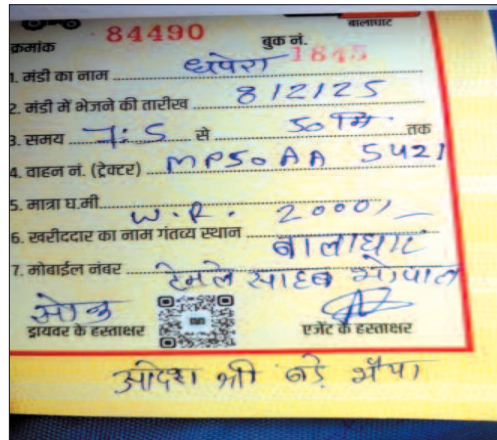 बालाघाट
क्रमांक 84490 बुक नं. 1845
1. मंडी का नाम धपेरा
2. मंडी में भेजने की तारीख 8/2/25
3. समय 7:5 से 50 तक
4. वाहन नं. (ट्रेक्टर) MP50AA 5421
5. मात्रा घ.मी. W.R. 2000/-
6. खरीददार का नाम गंतव्य स्थान बालाघाट
7. मोबाईल नंबर टेमले साहब भोपाल
डायवर के हस्ताक्षर एजेंट के हस्ताक्षर
आदेश श्री बड़े भैया